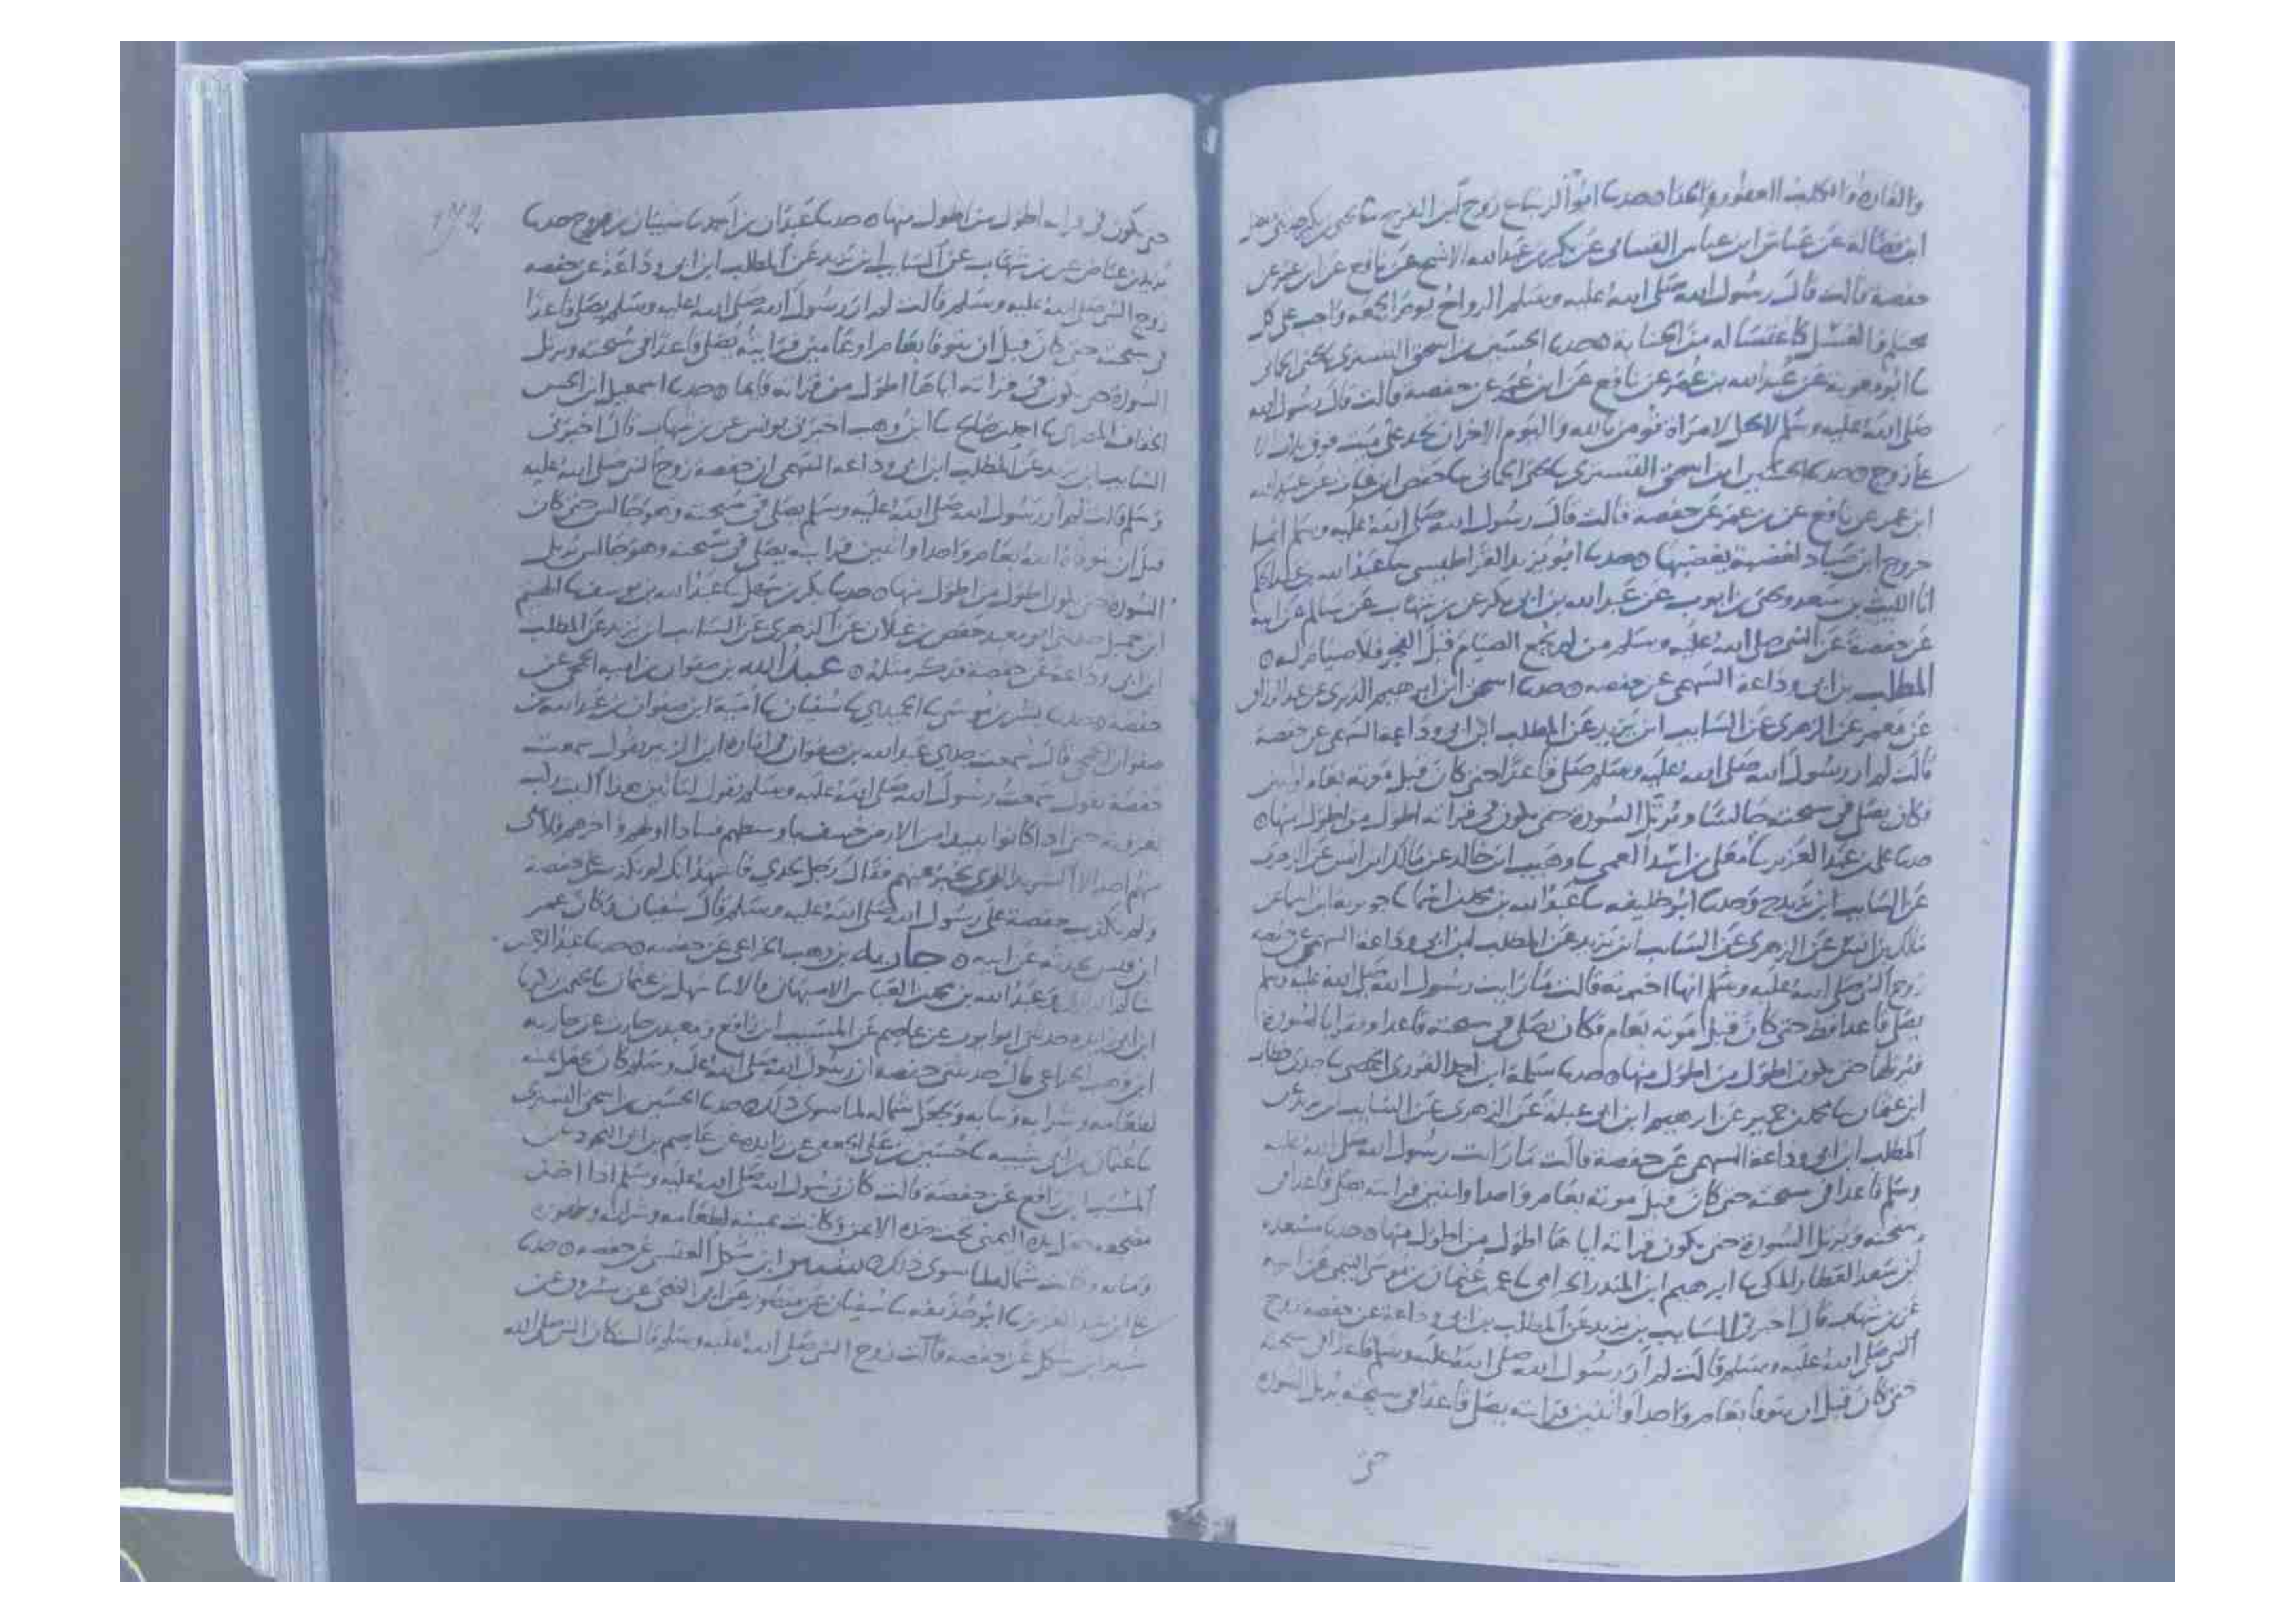 والفارة والكلب العقور والحداه حدثنا ابو الزنباع روح بن الفرج ثنا يحيى بن بكير حدثني المفضل
ابن فضالة عن عياش ابن عباس القتباني عن بكير بن عبد الله الاشج عن نافع عن ابن عمر عن
حفصة قالت قال رسول الله صلى الله عليه وسلم الرواح يوم الجمعه واجب على كل
محتلم والغسل كاغتساله من الجنابة ه حدثنا الحسين بن اسحق التستري يحيى الحماني
ثنا ابو معوية عن عبيد الله بن عمر عن نافع عن ابن عمر عن حفصة قالت قال رسول الله
صلى الله عليه وسلم لا يحل لامراة تومن بالله واليوم الاخر ان تحد على ميت فوق ثلاث الا
على زوج ه حدثنا الحسين ابن اسحق التستري يحيى الحماني ثنا حفص ابن غياث عن عبيد الله
ابن عمر عن نافع عن بن عمر عن حفصة قالت قال رسول الله صلى الله عليه وسلم انما
خروج ابن صياد لغضبة يغضبها ه حدثنا ابو يزيد القراطيسي ثنا عبد الله بن عبد الحكم
انا الليث بن سعد ويحيى بن ايوب عن عبد الله بن ابي بكر عن بن شهاب عن سالم عن ابيه
عن حفصة عن النبي صلى الله عليه وسلم من لم يجمع الصيام قبل الفجر فلا صيام له ه
المطلب بن ابي وداعة السهمي عن حفصه ه حدثنا اسحق ابن ابرهيم الدبري عن عبد الرزاق
عن معمر عن الزهري عن السايب ابن يزيد عن المطلب ابن ابي وداعة السهمي عن حفصة
قالت لم ار رسول الله صلى الله عليه وسلم صلى قاعدا حتى كان قبل موته بعام او اثنين
فكان يصلي في سبحته جالسا ويرتل السورة حتى يكون في قراته اطول من اطول منها ه
حدثنا علي بن عبد العزيز ثنا معلى بن اسد العمي ثنا وهيب ابن خالد عن مالك ابن انس عن الزهري
عن السايب ابن يزيد ح وحدثنا ابو خليفه ثنا عبد الله بن محمد بن اسما ثنا جويرية ابن اسما عن
مالك بن انس عن الزهري عن السايب ابن يزيد عن المطلب ابن ابي وداعة السهمي عن حفصه
زوج النبي صلى الله عليه وسلم انها اخبرته قالت ما رايت رسول الله صلى الله عليه وسلم
يصلي قاعدا قط حتى كان قبل موته بعام فكان يصلي في سبحته قاعدا ويقرا بالسورة
فيرتلها حتى يكون اطول من اطول منها ه حدثنا سلمة ابن احمد الفوزي الحمصي ثنا جدي خطاب
ابن عثمان ثنا محمد بن حمير عن ابرهيم ابن ابي عبلة عن الزهري عن السايب ابن يزيد عن
المطلب ابن ابي وداعة السهمي عن حفصة قالت ما رايت رسول الله صلى الله عليه
وسلم قاعدا في سبحته حتى كان قبل موته بعام واحد او اثنين فرايته يصلي قاعدا في
سبحته ويرتل السورة حتى يكون قراته اياها اطول من اطول منها ه حدثنا مسعدة
ابن سعد العطار المكي ثنا ابرهيم ابن المنذر الحزامي ثنا عمر بن عثمان بن موسى التيمي عن ابيه
عن بن شهاب قال اخبرني السايب بن يزيد عن المطلب بن ابي وداعة عن حفصه زوج
النبي صلى الله عليه وسلم قالت لم ار رسول الله صلى الله عليه وسلم قاعدا في سبحته
حتى كان قبل ان يتوفا بعام واحد او اثنين فرايته يصلي قاعدا في سبحته يرتل السورة
حتى
حتى يكون في قراته اطول من اطول منها ه حدثنا عبدان بن احمد ثنا شيبان بن فروح حدثنا
عن بن شهاب عن السايب ابن يزيد عن المطلب ابن ابي وداعة عن حفصه
زوج النبي صلى الله عليه وسلم قالت لم ار رسول الله صلى الله عليه وسلم يصلي قاعدا
في سبحته حتى كان قبل ان يتوفا بعام او عامين فرايته يصلي قاعدا في سبحته ويرتل
السورة حتى يكون في قراته اياها اطول من قراته قايما ه حدثنا اسمعيل ابن الحسن
الخفاف المصري ثنا احمد بن صالح ثنا ابن وهب اخبرني يونس عن بن شهاب قال اخبرني
السايب ابن يزيد عن المطلب ابن ابي وداعة السهمي ان حفصة زوج النبي صلى الله عليه
وسلم قالت لم ار رسول الله صلى الله عليه وسلم يصلي في سبحته وهو جالس حتى كان
قبل ان يتوفاه الله بعام واحد او اثنين فرايته يصلي في سبحته وهو جالس يرتل
السورة حتى يكون اطول من اطول منها ه حدثنا بكر بن سهل ثنا عبد الله بن يوسف ثنا الهيثم
ابن حميد حدثني ابو معيد حفص بن غيلان عن الزهري عن السايب ابن يزيد عن المطلب
ابن ابي وداعة عن حفصة فذكر مثله ه عبد الله بن صفوان بن امية الجمحي عن
حفصه ه حدثنا بشر بن موسى ثنا الحميدي ثنا سفيان ثنا امية ابن صفوان بن عبد الله بن
صفوان الجمحي قال سمعت جدي عبد الله بن صفوان في اماره ابن الزبير يقول سمعت
حفصة تقول سمعت رسول الله صلى الله عليه وسلم يقول ليامن هذا البيت جيش
يغزونه حتى اذا كانوا ببيدا من الارض خسف باوسطهم فينادا اولهم واخرهم فلا يبقى
منهم احد الا الشريد الذي يخبر عنهم فقال رجل لجدي فاشهد انك لم تكذب على حفصة
ولم تكذب حفصة على رسول الله صلى الله عليه وسلم قال سفيان وكان عمر
ابن قيس يحدثه عن ابيه ه حارثة بن وهب الخزاعي عن حفصه ه حدثنا عبد الرحمن
وعبد الله بن محمد بن العباس الاصبهاني قالا ثنا سهل بن عثمان ثنا يحيى بن زكريا
ابن ابي زايده حدثني ابو ايوب عن عاصم عن المسيب ابن رافع ومعبد بن خالد عن حارثة
ابن وهب الخزاعي قال حدثتني حفصه ان رسول الله صلى الله عليه وسلم كان يجعل يمينه
لطعامه وشرابه وثيابه ويجعل شماله لما سوى ذلك ه حدثنا الحسين بن اسحق التستري
ثنا عثمان بن ابي شيبه ثنا حسين بن علي الجعفي عن زايده عن عاصم بن ابي النجود عن
المسيب ابن رافع عن حفصة قالت كان رسول الله صلى الله عليه وسلم اذا اخذ
مضجعه جعل يده اليمنى تحت خده الايمن وكانت يمينه لطعامه وشرابه وطهوره
وثيابه وكانت شماله لما سوى ذلك ه شتير ابن شكل العبسي عن حفصه ه حدثنا
علي ابن عبد العزيز ثنا ابو حذيفه ثنا سفيان عن منصور عن ابي الضحى عن مسروق عن
شتير ابن شكل عن حفصه قالت زوج النبي صلى الله عليه وسلم قالت كان النبي صلى الله